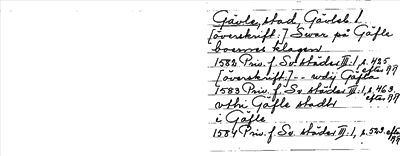 Gävle, stad, Gävleb. l
[överskrift:] Swar på Gäfle
boernes klagen
1582 Priv. f. Sv. städer III:1, s. 425
efter
[överskrift] -- wdij Gäfla
1583 Priv. f. Sv. städer III:1, s. 463
efter
vthi Gäfle stadh
i Gäfle
1584 Priv. f. Sv. städer III:1, s. 503
efter